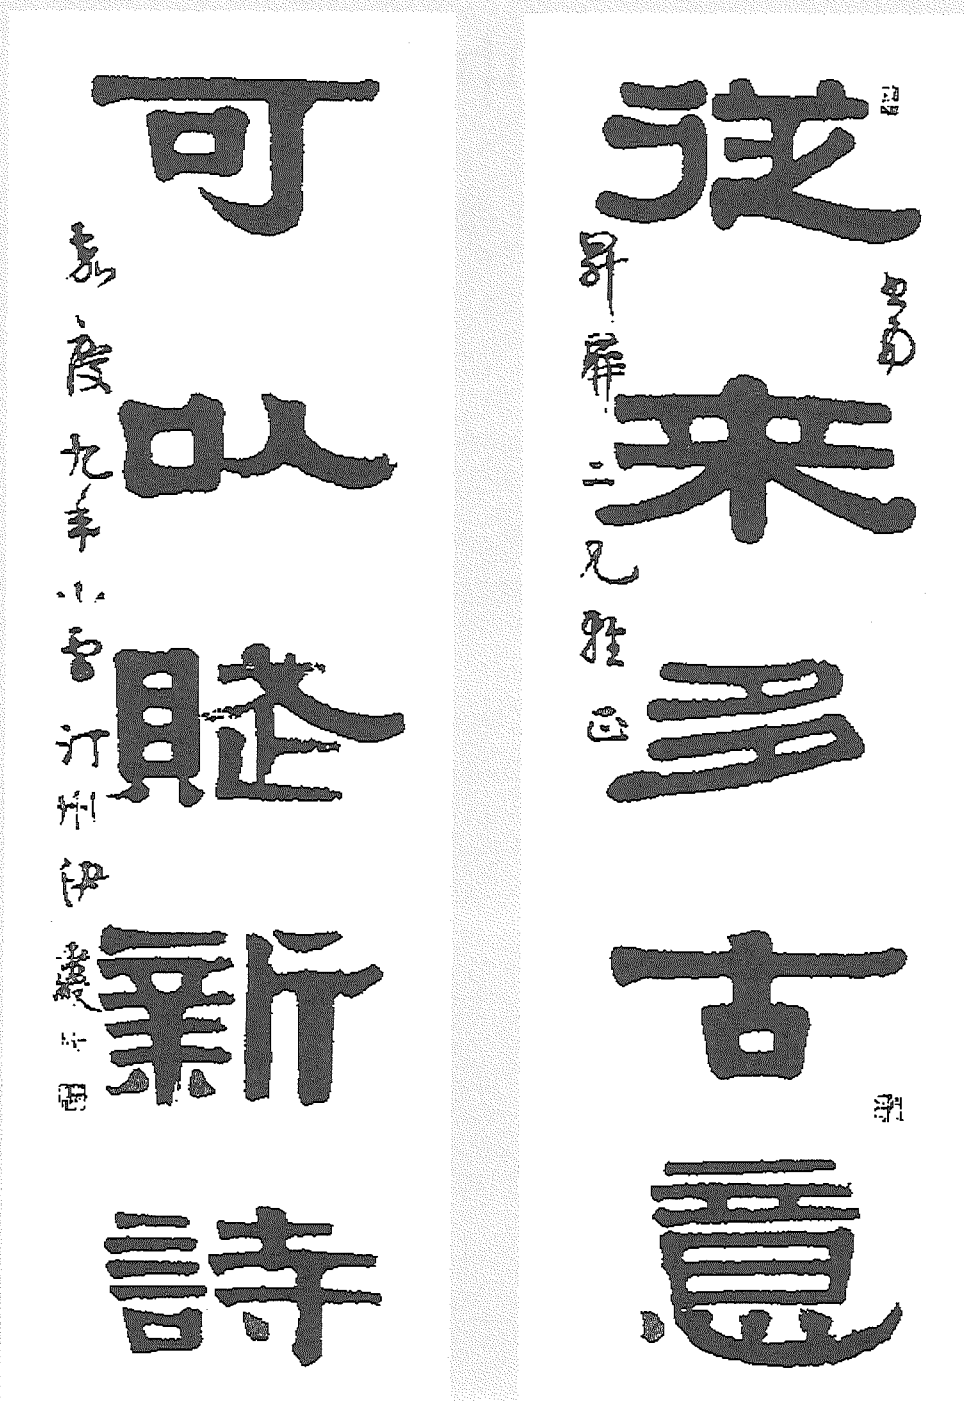 從來多古意
昇屏二兄雅正
可以賦新詩
嘉慶九年小雪汀州伊